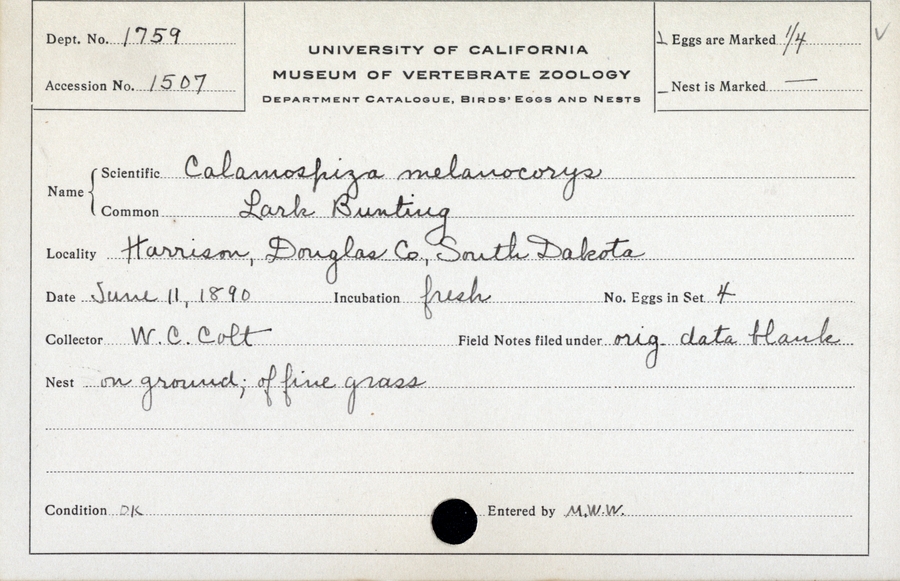 Dept. No. 1759
Accession No. 1507
UNIVERSITY OF CALIFORNIA
MUSEUM OF VERTEBRATE ZOOLOGY
DEPARTMENT CATALOGUE, BIRDS' EGGS AND NESTS
Eggs are Marked 1/4
Nest is Marked —
Name { Scientific Calamospiza melanocorys
Common Lark Bunting
Locality Harrison, Douglas Co., South Dakota
Date June 11, 1890 Incubation fresh No. Eggs in Set 4
Collector W. C. Colt Field Notes filed under orig. data blank
Nest on ground; of fine grass
Condition OK Entered by M.W.W.